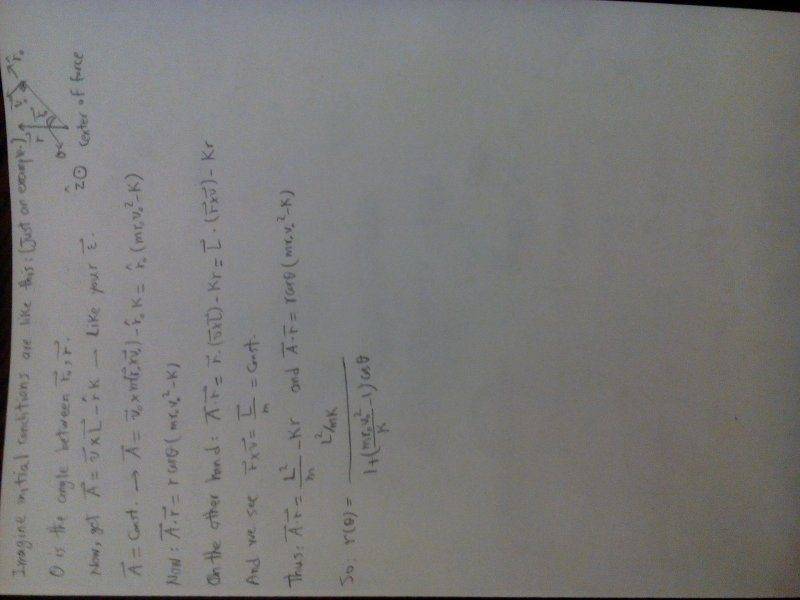 Imagine initial conditions are like this: (Just an example)
θ is the angle between r⃗₀, r⃗.
ẑ ⊙ center of force
Now, get A⃗ = v⃗ × L⃗ - r̂ K → Like your ε⃗.
A⃗ = Const. → A⃗ = v⃗₀ × m(r⃗₀ × v⃗₀) - r̂₀ K = r̂₀ (m r₀ v₀² - K)
Now: A⃗ · r⃗ = r cos θ (m r₀ v₀² - K)
On the other hand: A⃗ · r⃗ = r⃗ · (v⃗ × L⃗) - K r = L⃗ · (r⃗ × v⃗) - K r
And we see r⃗ × v⃗ = L⃗/m = Const.
Thus: A⃗ · r⃗ = L²/m - K r and A⃗ · r⃗ = r cos θ (m r₀ v₀² - K)
So: r(θ) = (L²/mK) / (1 + (m r₀ v₀²/K - 1) cos θ)